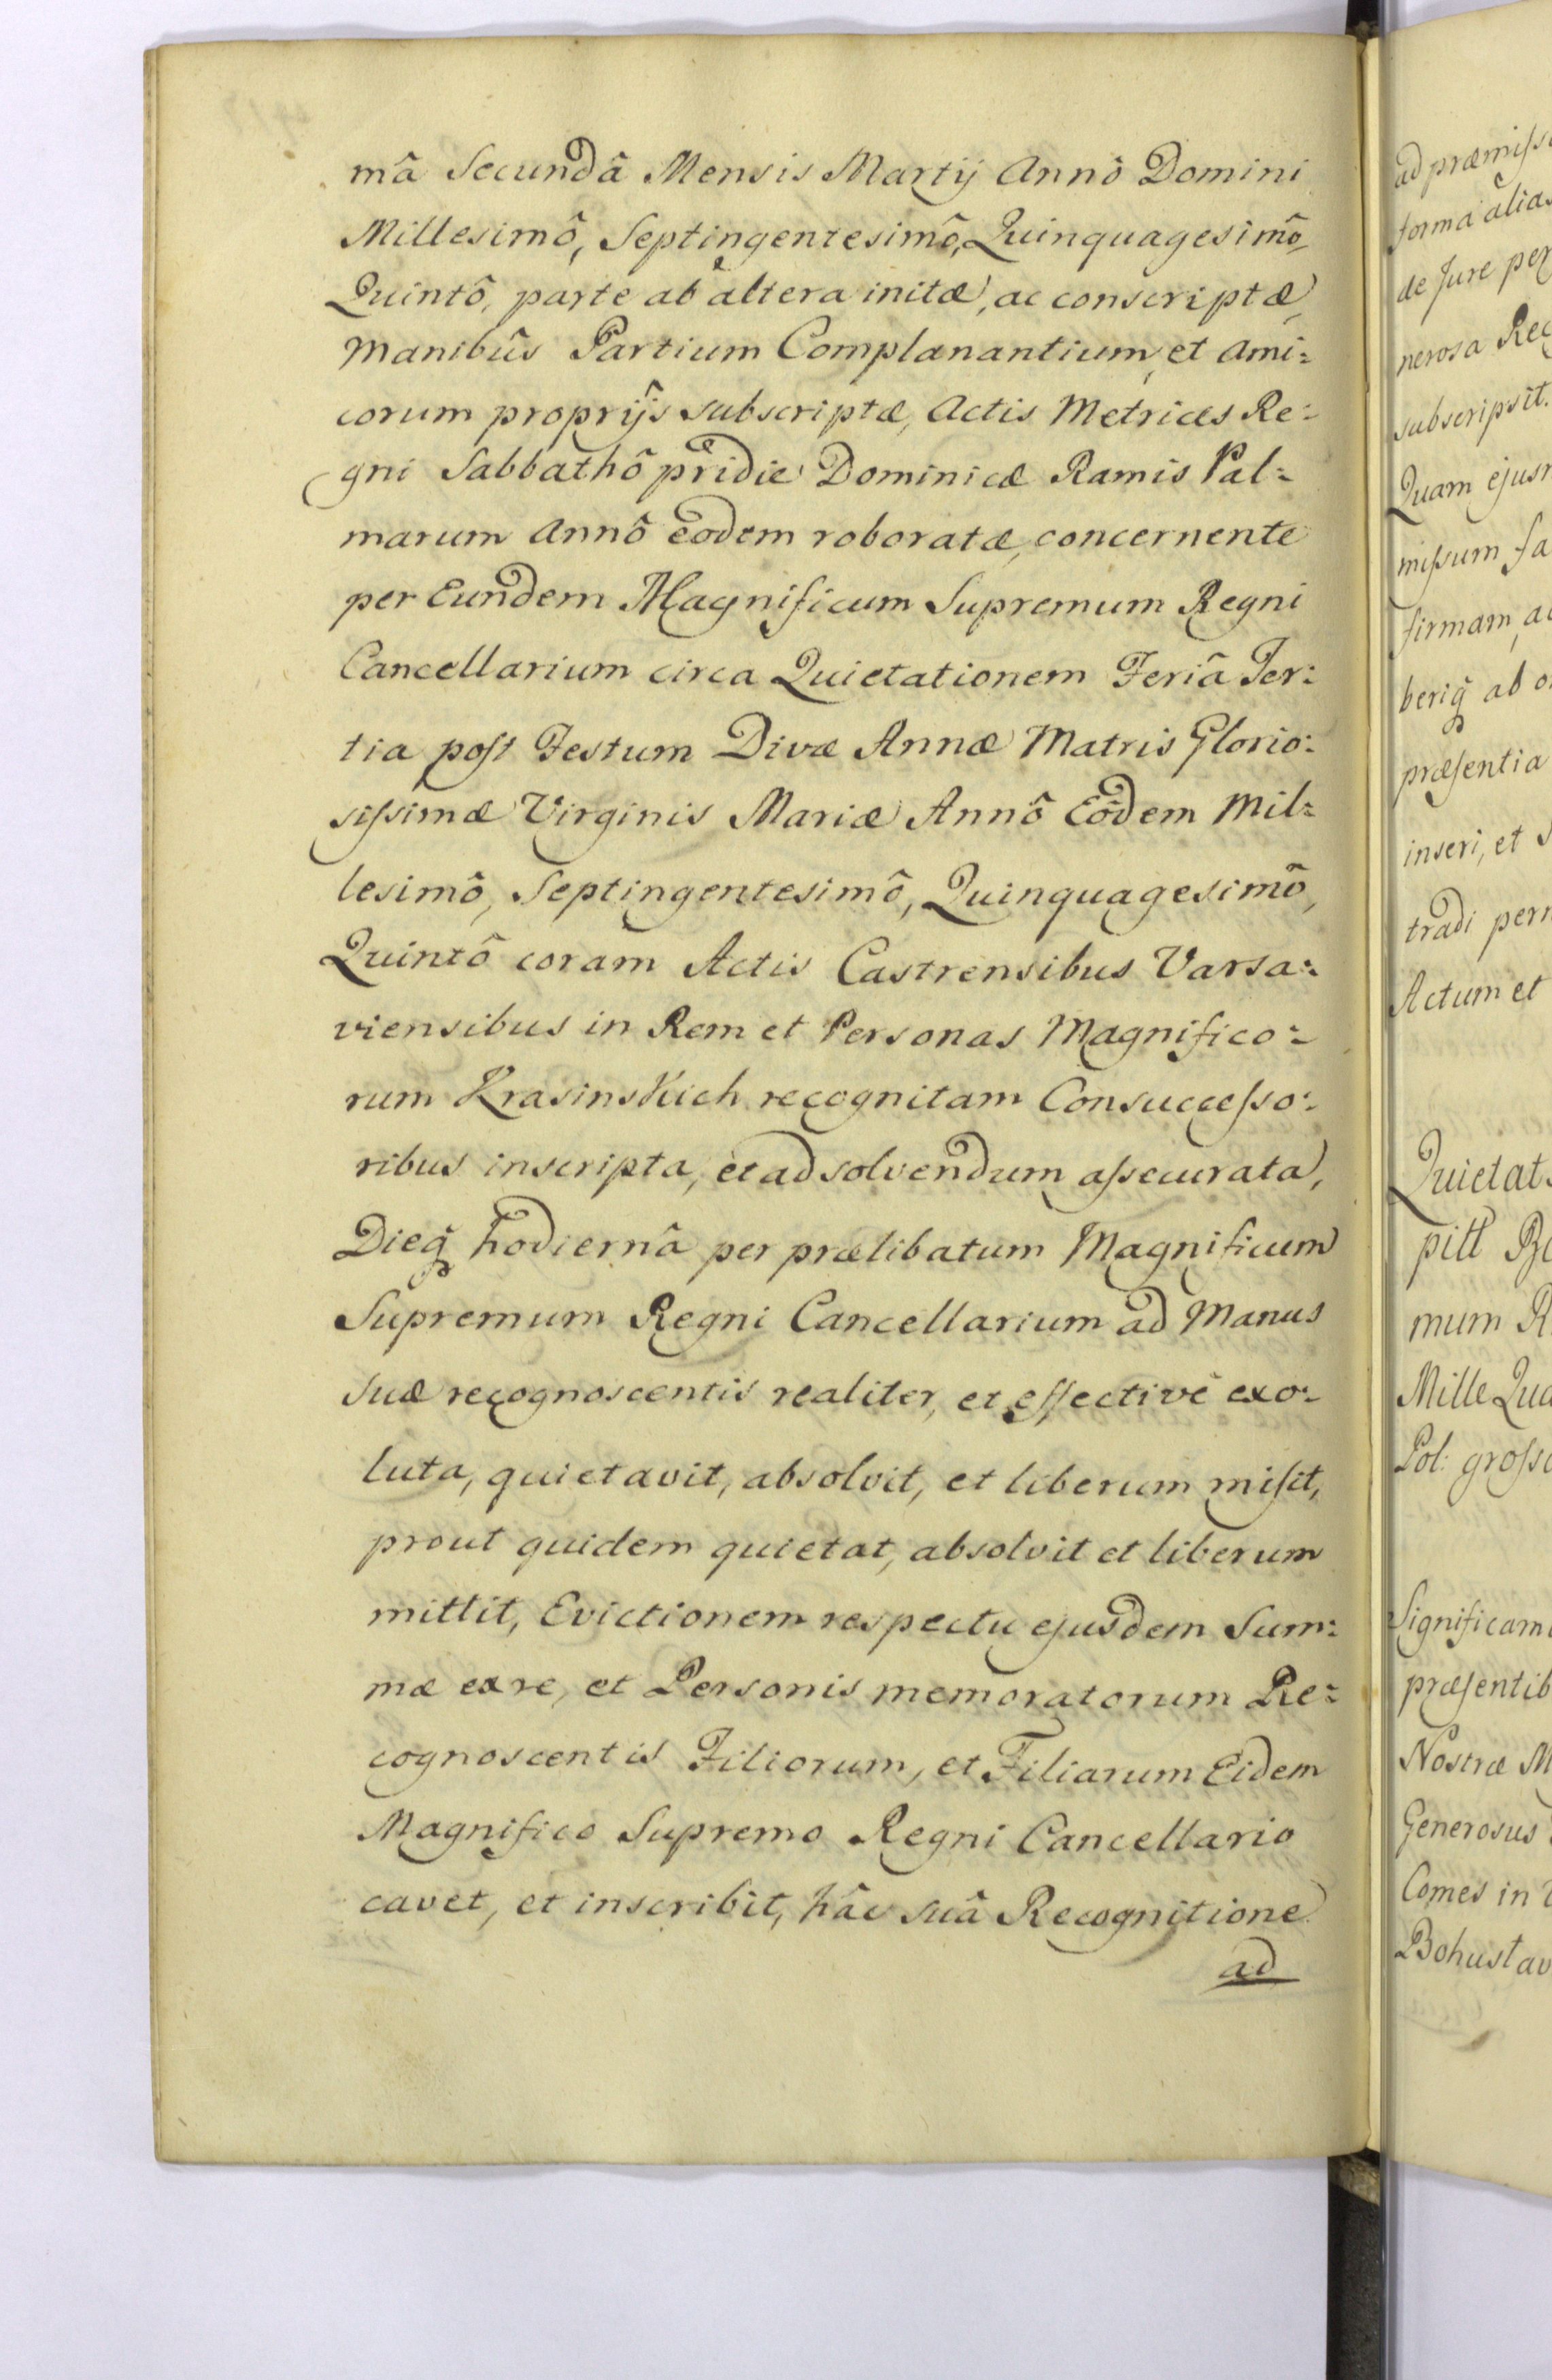 mâ Secundâ Mensis Martij Annô Domini
Millesimô, Septingentesimô, Quinquagesimô
Quintô, parte ab altera initæ, ac conscriptæ,
Manibûs Partium Complanantium, et Ami=
corum proprijs subscriptæ, Actis Metrices Re=
gni Sabbathô pridie Dominicæ Ramis Pal=
marum Annô eodem roboratæ, concernente
per Eundem Magnificum Supremum Regni
Cancellarium circa Quietationem Feriâ Ter=
tia post Festum Divæ Annæ Matris Glorio=
sissimæ Virginis Mariæ Annô Eodem Mil=
lesimô, Septingentesimô, Quinquagesimô,
Quintô coram Actis Castrensibus Varsa=
viensibus in Rem et Personas Magnifico=
rum Krasinskich recognitam Consuccesso=
ribus inscripta, et ad solvendum assecurata,
Dieq̃ hodiernâ per prælibatum Magnificum
Supremum Regni Cancellarium ad Manus
suæ recognoscentis realiter, et effectivè exo=
luta, quietavit, absolvit, et liberum misit,
prout quidem quietat, absolvit et liberum
mittit, Evictionem respectu ejusdem Sum=
mæ ex re, et Personis memoratorum Re=
cognoscentis Filiorum, et Filiarum Eidem
Magnifico Supremo Regni Cancellario
cavet, et inscribit, hâc suâ Recognitione
ad
ad præmiss
forma alias
de Jure per
nerosa Rec
subscripsit.
Quam ejus
missum fa
firmam, ac
beriq̃ ab o
præsentia
inseri, et S
tradi per
Actum et
Quietat
pitl
mum R
Mille Qua
Pol: grosso
Significam
præsentib
Nostræ M
Generosus
Comes in
Bohuslav